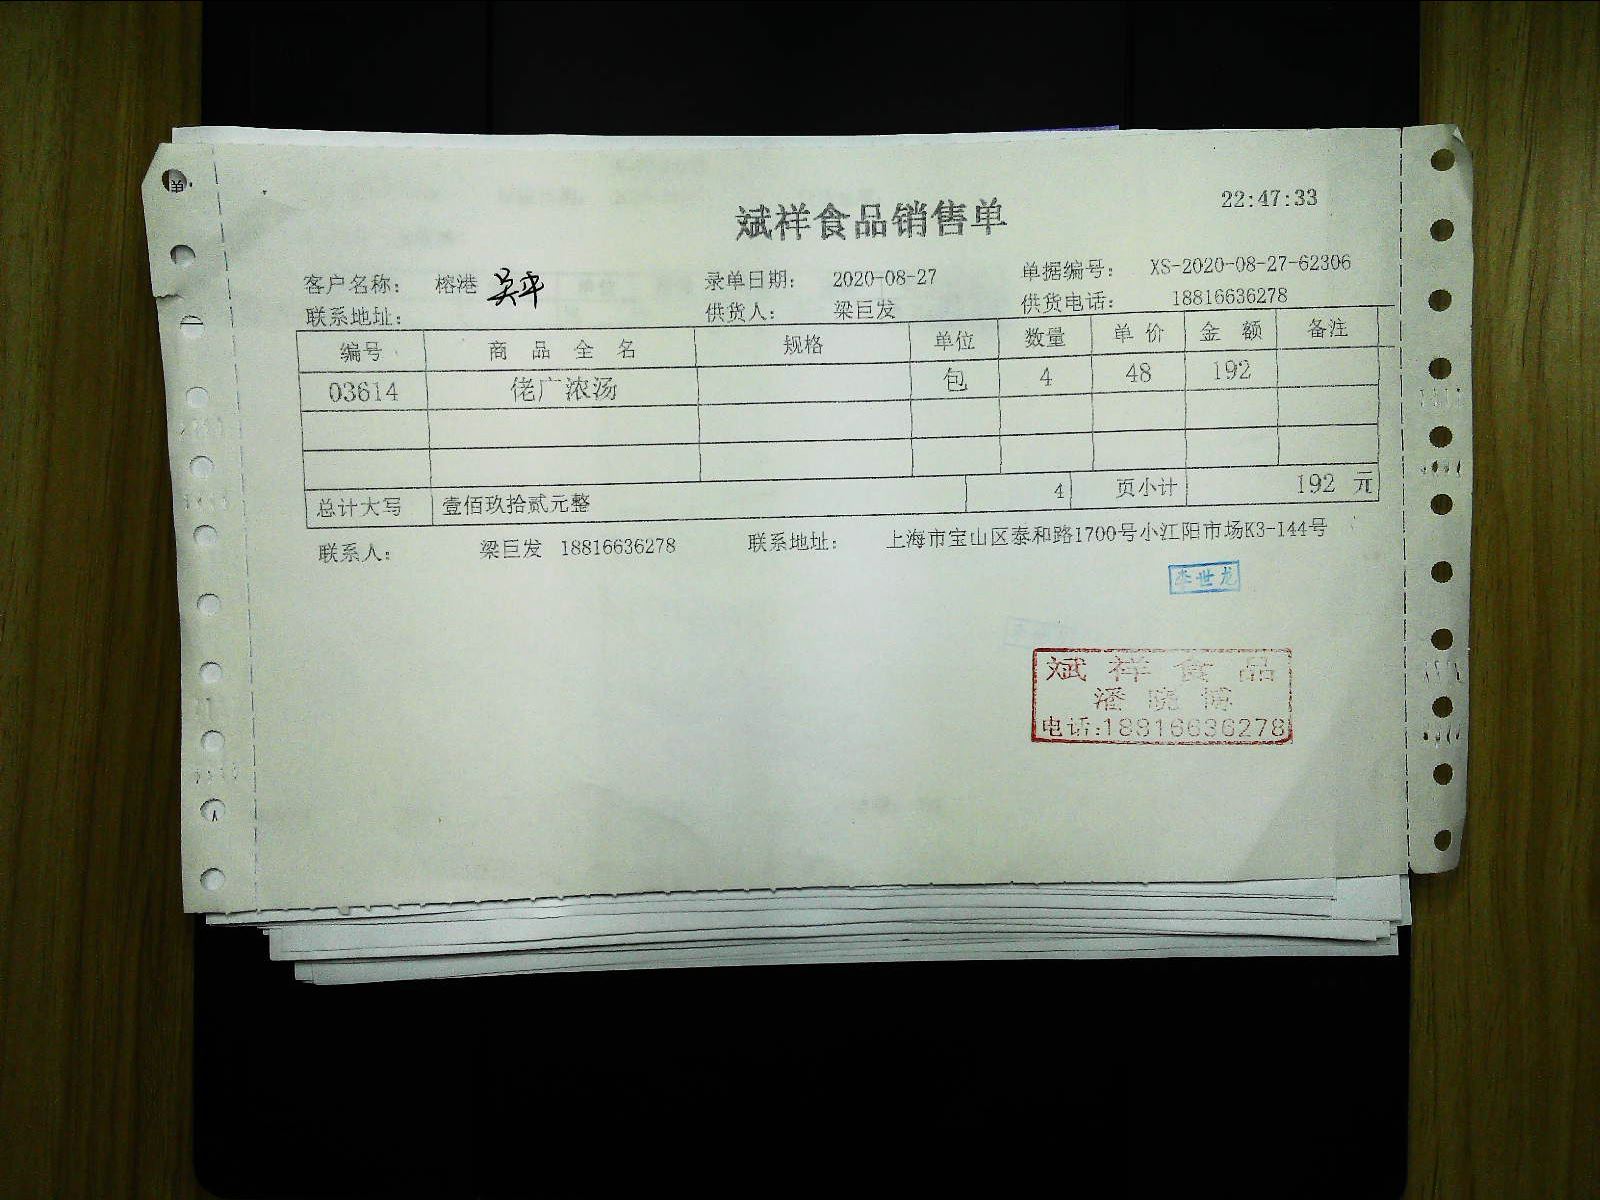 22:47:33
斌祥食品销售单
客户名称： 榕港 吴平 录单日期： 2020-08-27 单据编号： XS-2020-08-27-62306
联系地址： 供货人： 梁巨发 供货电话： 18816636278
编号 商品全名 规格 单位 数量 单价 金额 备注
03614 佬广浓汤 包 4 48 192
总计大写 壹佰玖拾贰元整 4 页小计 192 元
联系人： 梁巨发 18816636278 联系地址： 上海市宝山区泰和路1700号小江阳市场K3-144号
李世龙
斌祥食品
潘晓博
电话:18816636278